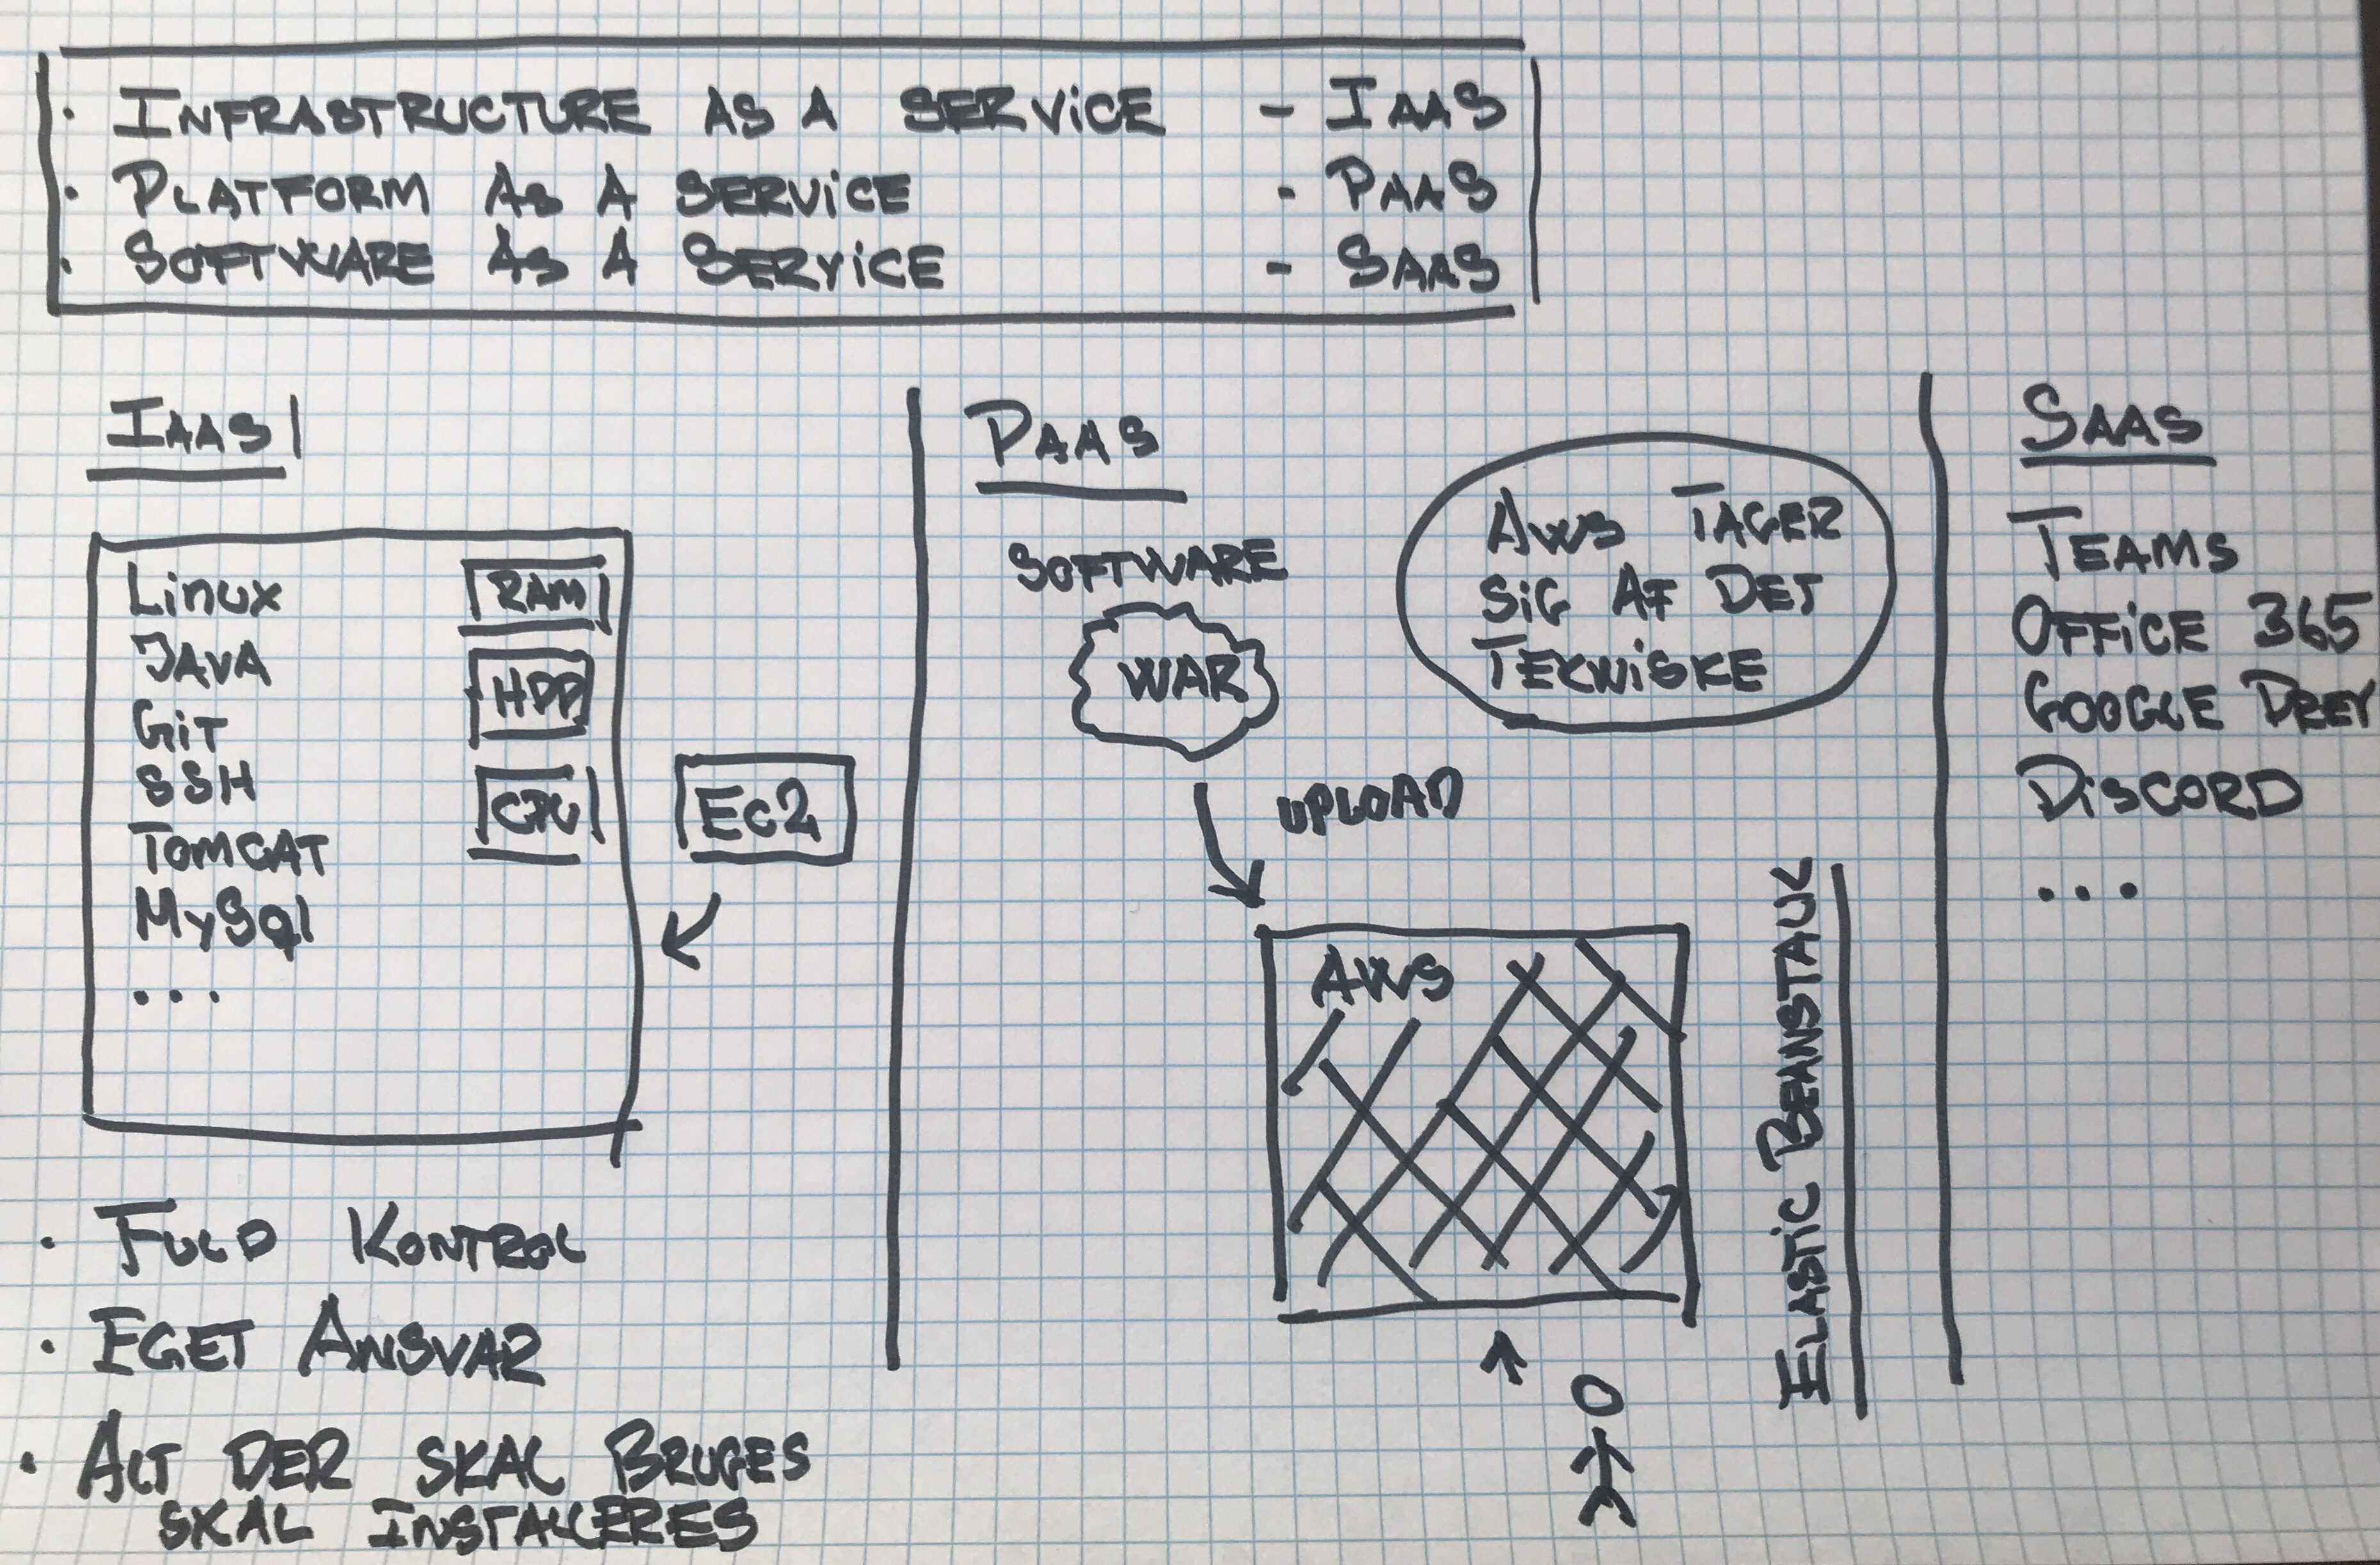 · INFRASTRUCTURE AS A SERVICE - IAAS
· PLATFORM AS A SERVICE - PAAS
· SOFTWARE AS A SERVICE - SAAS
IAAS
Linux
JAVA
GiT
SSH
TOMCAT
MySQl
...
RAM
HDD
CPU
EC2
· FULD KONTROL
· EGET ANSVAR
· ALT DER SKAL BRUGES
SKAL INSTALLERES
PAAS
SOFTWARE
WAR
UPLOAD
AWS TAGER
SIG AF DET
TEKNISKE
AWS
ELASTIC BEANSTALK
SAAS
TEAMS
OFFICE 365
GOOGLE DREV
DISCORD
...